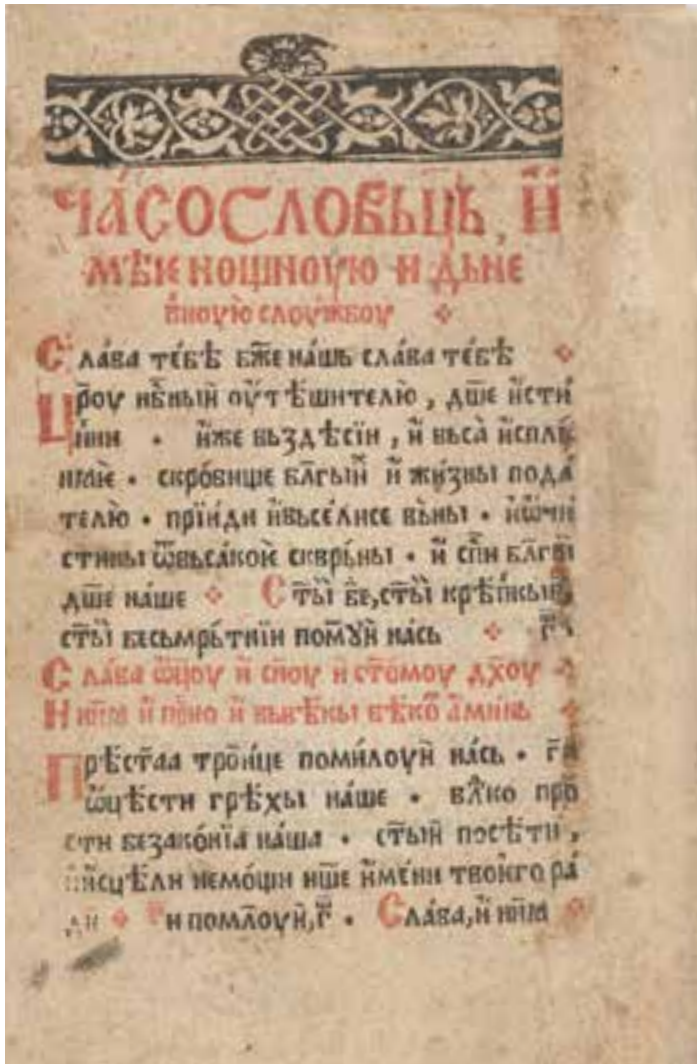 ЧА́СОСЛОВЬЦЬ, И҆
мѣѥ нощноую и дьне
вноую слоужбоу
Сла́ва те́бѣ бж҃е на́шь сла́ва те́бѣ
Цр҃оу нб҃ный оу҆тѣшителю, дш҃е и҆сти́
и҆же вьздѣсїи, и҆ вьса̀ и҆спль
скро́вище бл҃гы́й и҆ жи́зны пода́
телю • прїи́ди и҆вьсели́се вь́ны •
стины ѿвьса́коѥ скврь́ны • и҆ сп҃и бл҃гы
дш҃е на́ше С҃ты́ б҃е, ст҃ы́ крѣ́пкы
ст҃ы́ бесьмрь́тнїи пом҃ꙋи на́сь г҃
Сла́ва ѿц҃оу и҆ сн҃оу и҆ ст҃омоу дх҃оу
И нн҃ꙗ и҆ пр҃но и҆ вьвѣ́кы вѣ́ко а҆минь
Прѣст҃аа трои́це поми́лоуи на́сь • г҃и
ѿцѣ́сти грѣ́хы на́ше • вл҃ко про
сти безако́нїа на́ша • ст҃ый посѣ́ти,
и҆исцѣ́ли немо́щи нш҃е и҆́мени твоѥго ра́
ди г҃и помл҃оуи, г҃ • Сла́ва, и҆ нн҃ꙗ